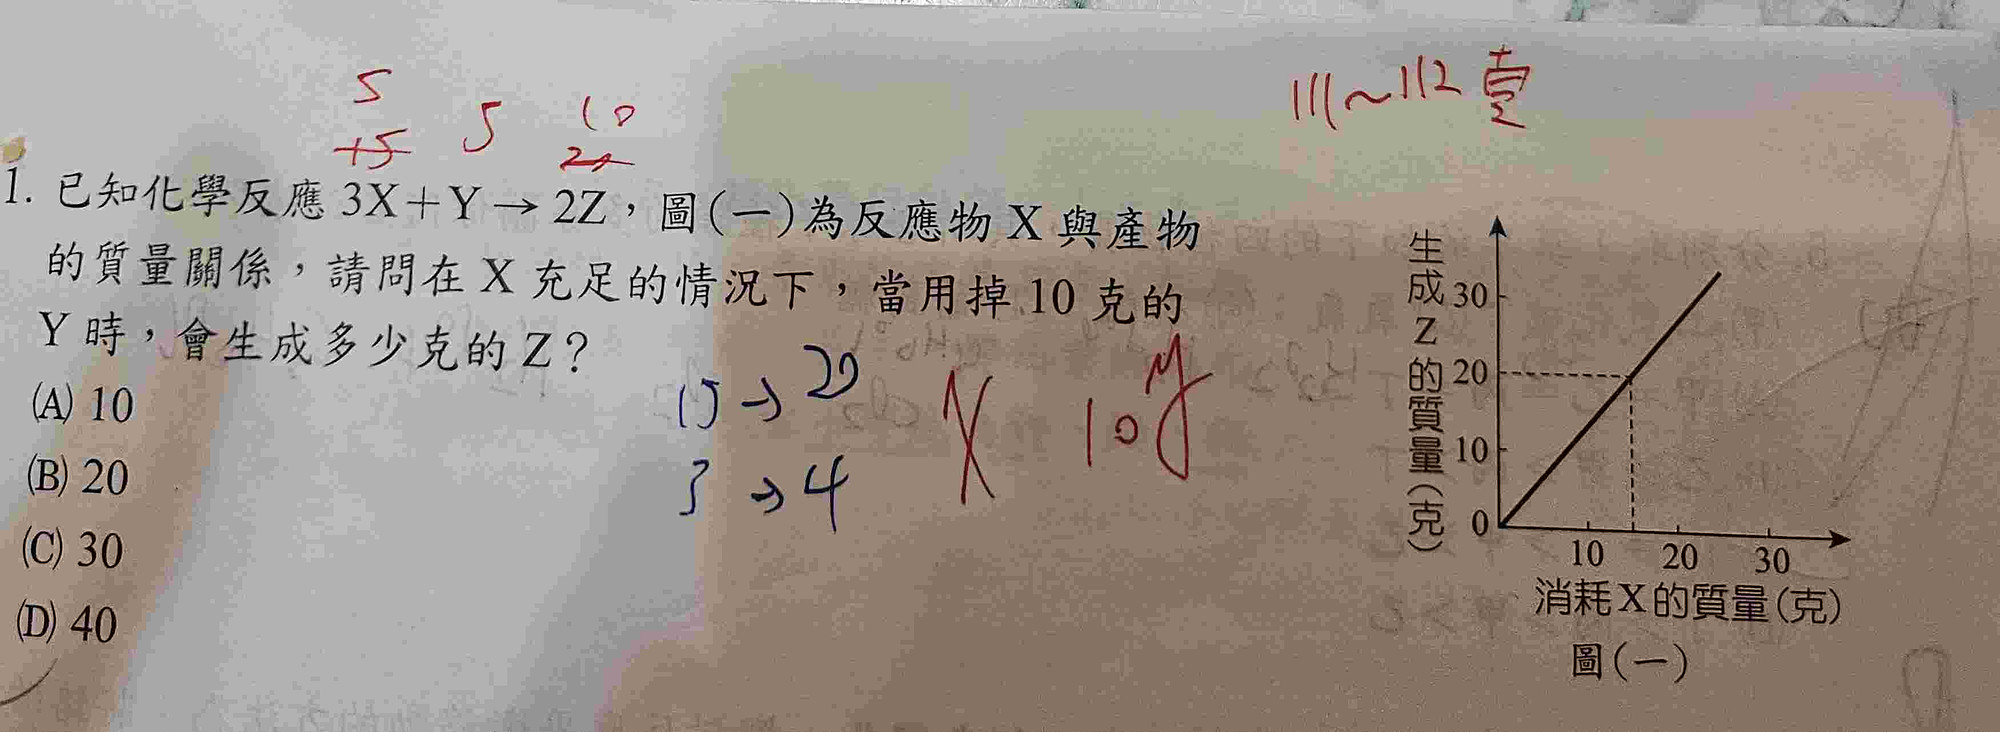 111~112
5
15 5 10
1. 已知化學反應 3X+Y→2Z,圖(一)為反應物 X 與產物
的質量關係,請問在 X 充足的情況下,當用掉 10 克的
Y 時,會生成多少克的 Z?
(A) 10
(B) 20
(C) 30
(D) 40
15→20
3→4
X 10y
生成Z的質量(克)
30
20
10
0
10 20 30
消耗X的質量(克)
圖(一)